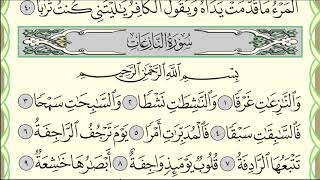 الْمَرْءُ مَا قَدَّمَتْ يَدَاهُ وَيَقُولُ الْكَافِرُ يَٰلَيْتَنِي كُنتُ تُرَٰبًا ٤٠
سُورَةُ النَّازِعَاتِ
بِسْمِ اللَّهِ الرَّحْمَٰنِ الرَّحِيمِ
وَالنَّٰزِعَٰتِ غَرْقًا ١ وَالنَّٰشِطَٰتِ نَشْطًا ٢ وَالسَّٰبِحَٰتِ سَبْحًا ٣
فَالسَّٰبِقَٰتِ سَبْقًا ٤ فَالْمُدَبِّرَٰتِ أَمْرًا ٥ يَوْمَ تَرْجُفُ الرَّاجِفَةُ ٦
تَتْبَعُهَا الرَّادِفَةُ ٧ قُلُوبٌ يَوْمَئِذٍ وَاجِفَةٌ ٨ أَبْصَٰرُهَا خَٰشِعَةٌ ٩